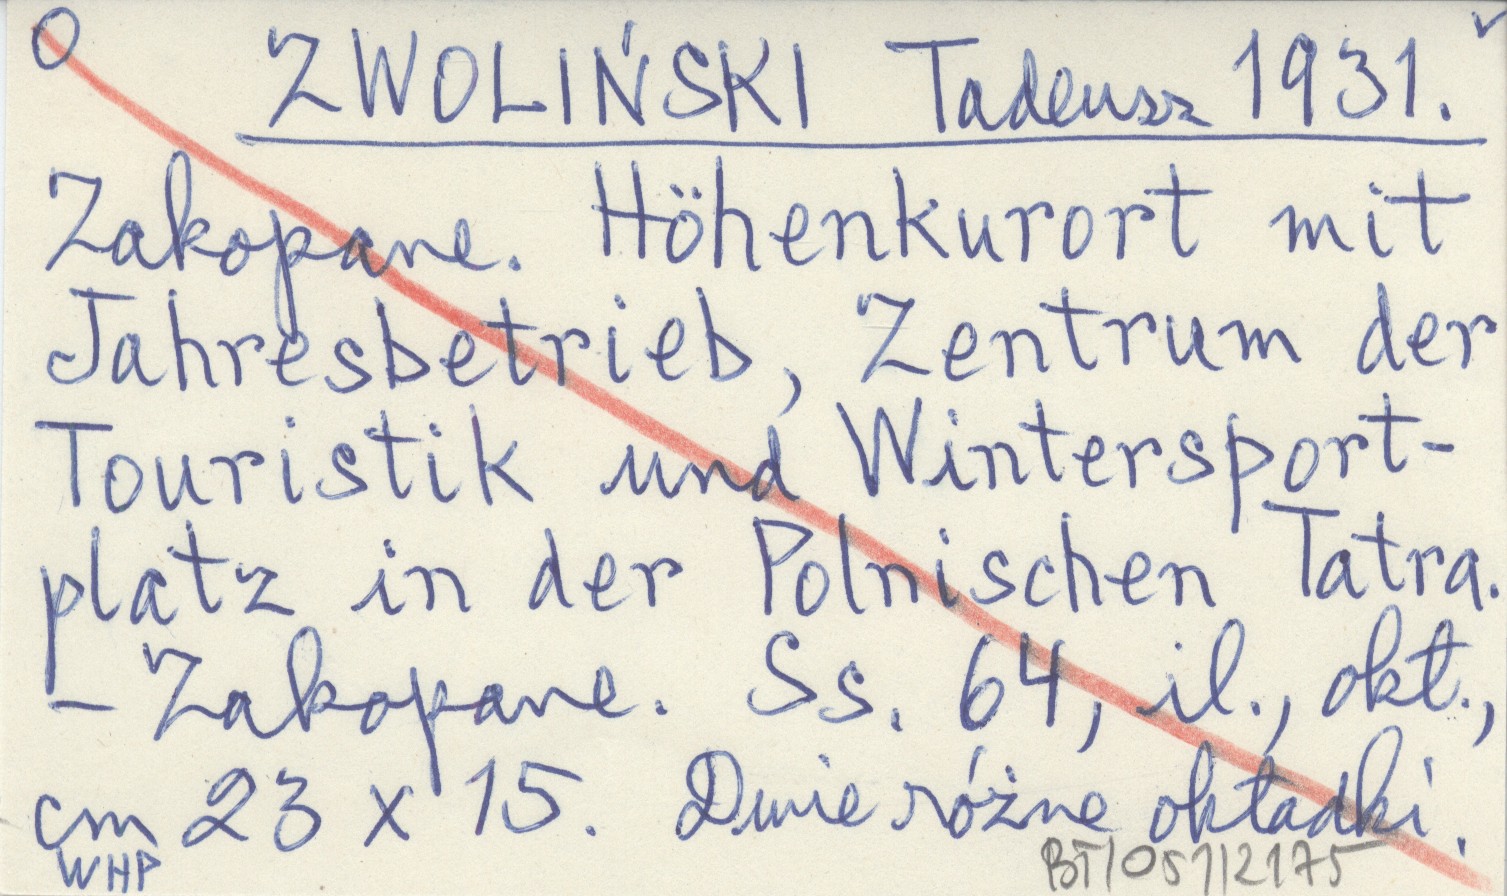 ZWOLIŃSKI Tadeusz 1931.
Zakopane. Höhenkurort mit
Jahresbetrieb, Zentrum der
Touristik und Wintersport-
platz in der Polnischen Tatra.
- Zakopane. Ss. 64, il., okł.,
cm 23 x 15. Dwie różne okładki.
WHP BT/051/2175